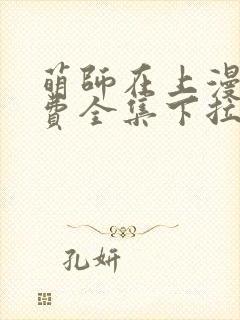 萌師在上漫
費全集下拉
孔妍